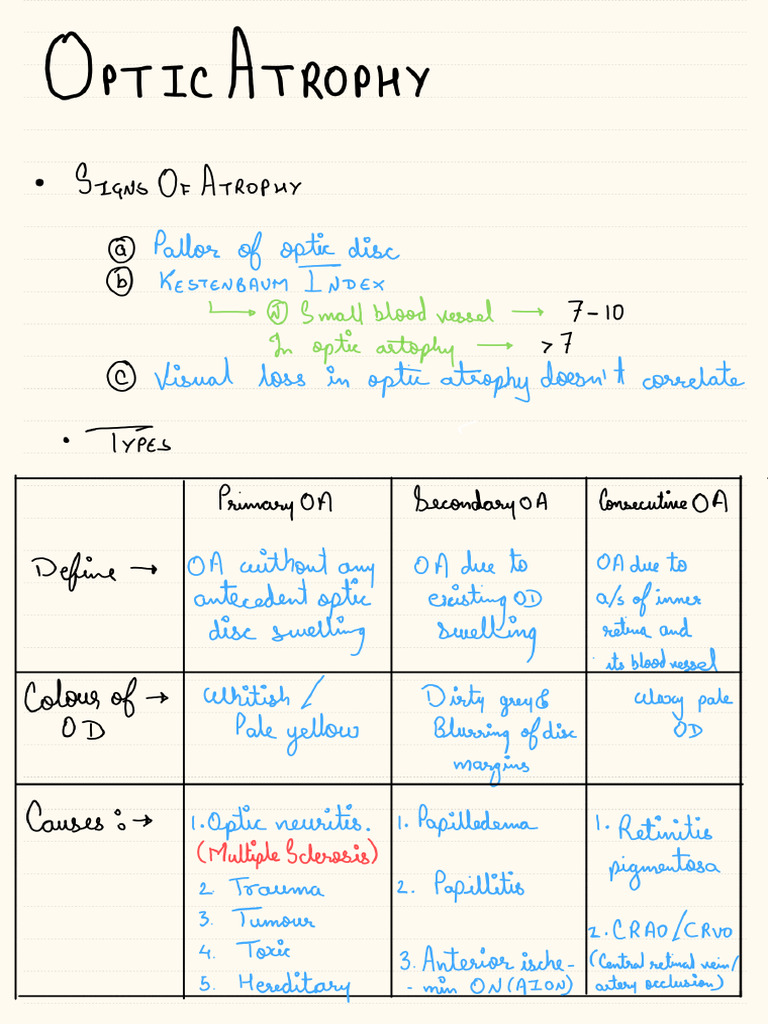 OPTIC ATROPHY
• SIGNS OF ATROPHY
ⓐ Pallor of optic disc
ⓑ KESTENBAUM INDEX
Ⓝ Small blood vessel → 7-10
In optic artophy → >7
ⓒ Visual loss in optic atrophy doesn't correlate
• TYPES
Primary OA
Secondary OA
Consecutive OA
Define →
OA without any
antecedent optic
disc swelling
OA due to
existing OD
swelling
OA due to
a/s of inner
retina and
its blood vessel
Colour of →
OD
Whitish /
Pale yellow
Dirty grey &
Blurring of disc
margins
Waxy pale
OD
Causes :→
1. Optic neuritis.
(Multiple Sclerosis)
2. Trauma
3. Tumour
4. Toxic
5. Hereditary
1. Papilledema
2. Papillitis
3. Anterior ische-
- min ON (AION)
1. Retinitis
pigmentosa
2. CRAO/CRVO
(Central retinal vein/
artery occlusion)